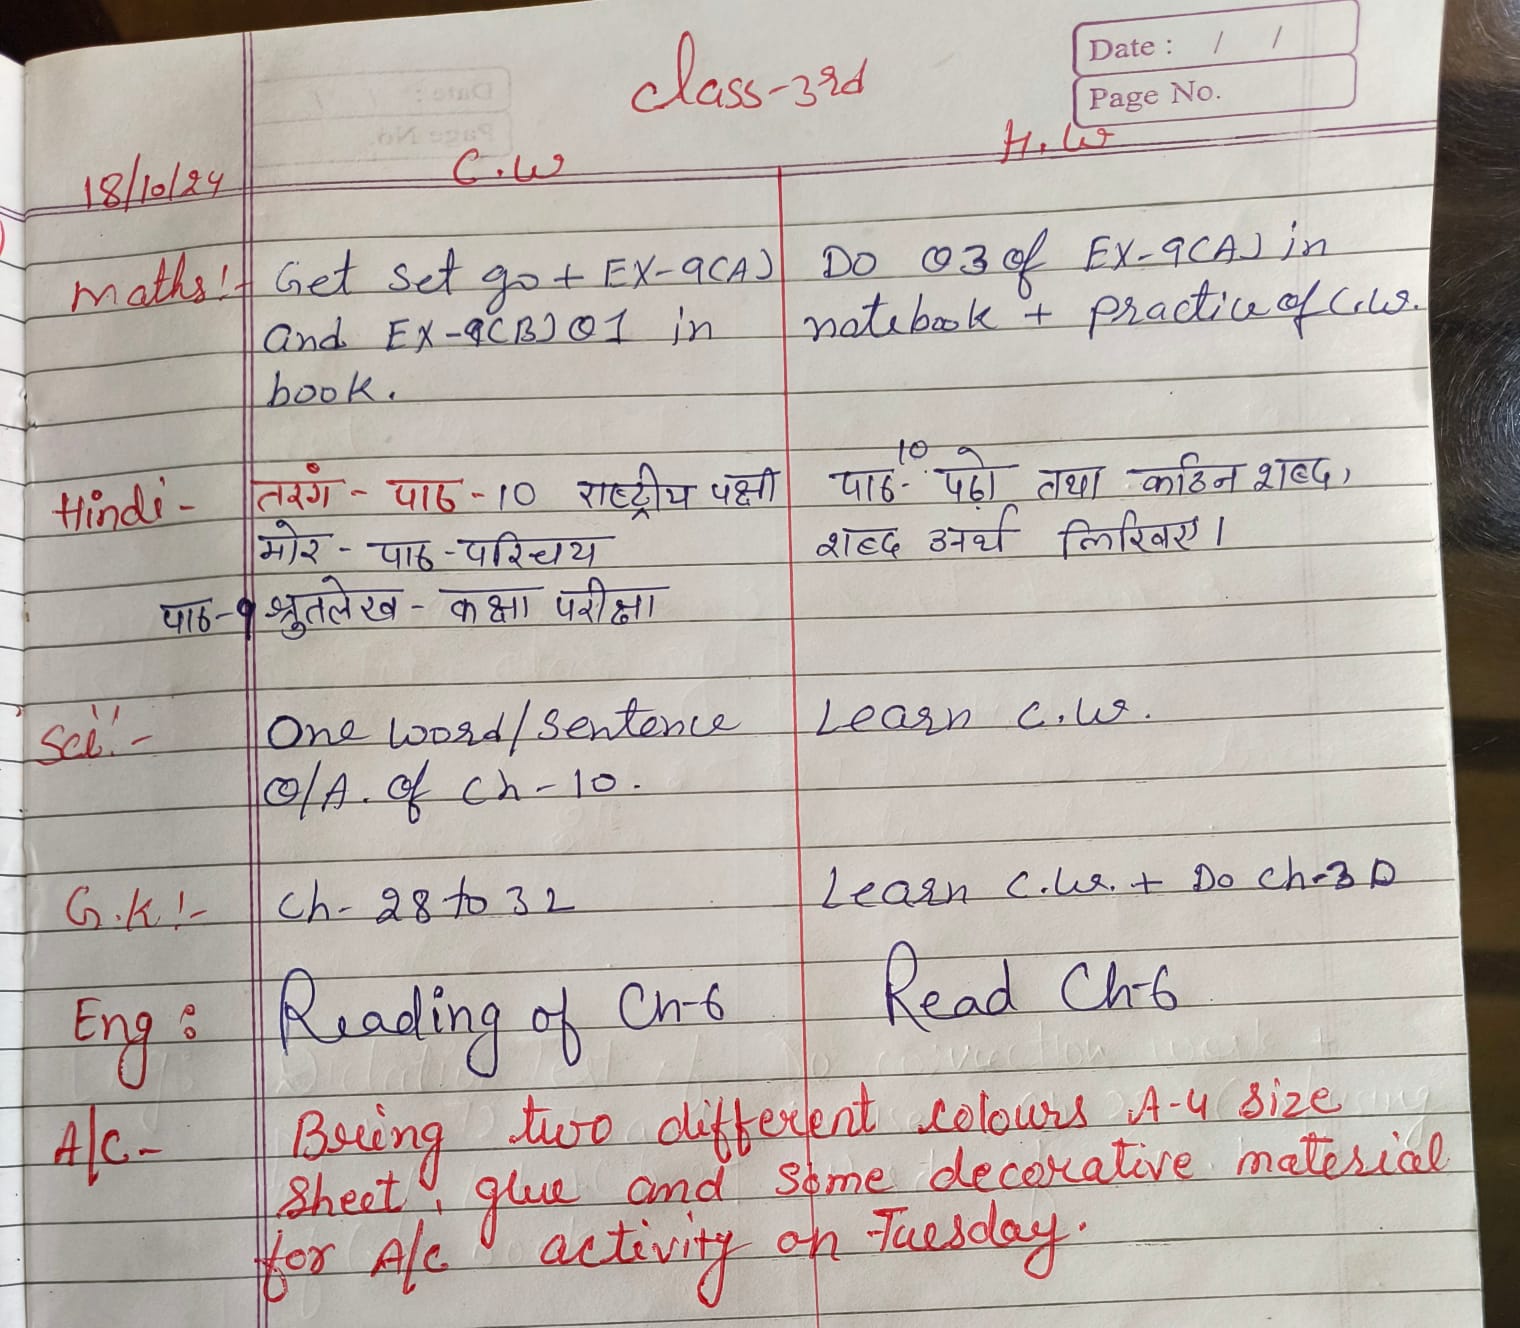 Date : / /
Page No.
class-3rd
18/10/24
C.W
H.W
Maths:-
Get set go + EX-9(A)
and EX-9(B) Q1 in
book.
Do Q3 of EX-9(A) in
notebook + practice of C.W.
Hindi-
तरंग - पाठ - 10 राष्ट्रीय पक्षी
मोर - पाठ - परिचय
पाठ-9 श्रुतलेख - कक्षा परीक्षा
10
पाठ- पढ़ो तथा कठिन शब्द,
शब्द अर्थ लिखिए।
Sci:-
One word/sentence
Q/A. of Ch-10.
Learn C.W.
G.K:-
Ch- 28 to 32
Learn C.W. + Do Ch-3D
Eng:
Reading of Ch-6
Read Ch-6
A/C-
Bring two different colours A-4 size
sheet, glue and some decorative material
for A/C activity on Tuesday.